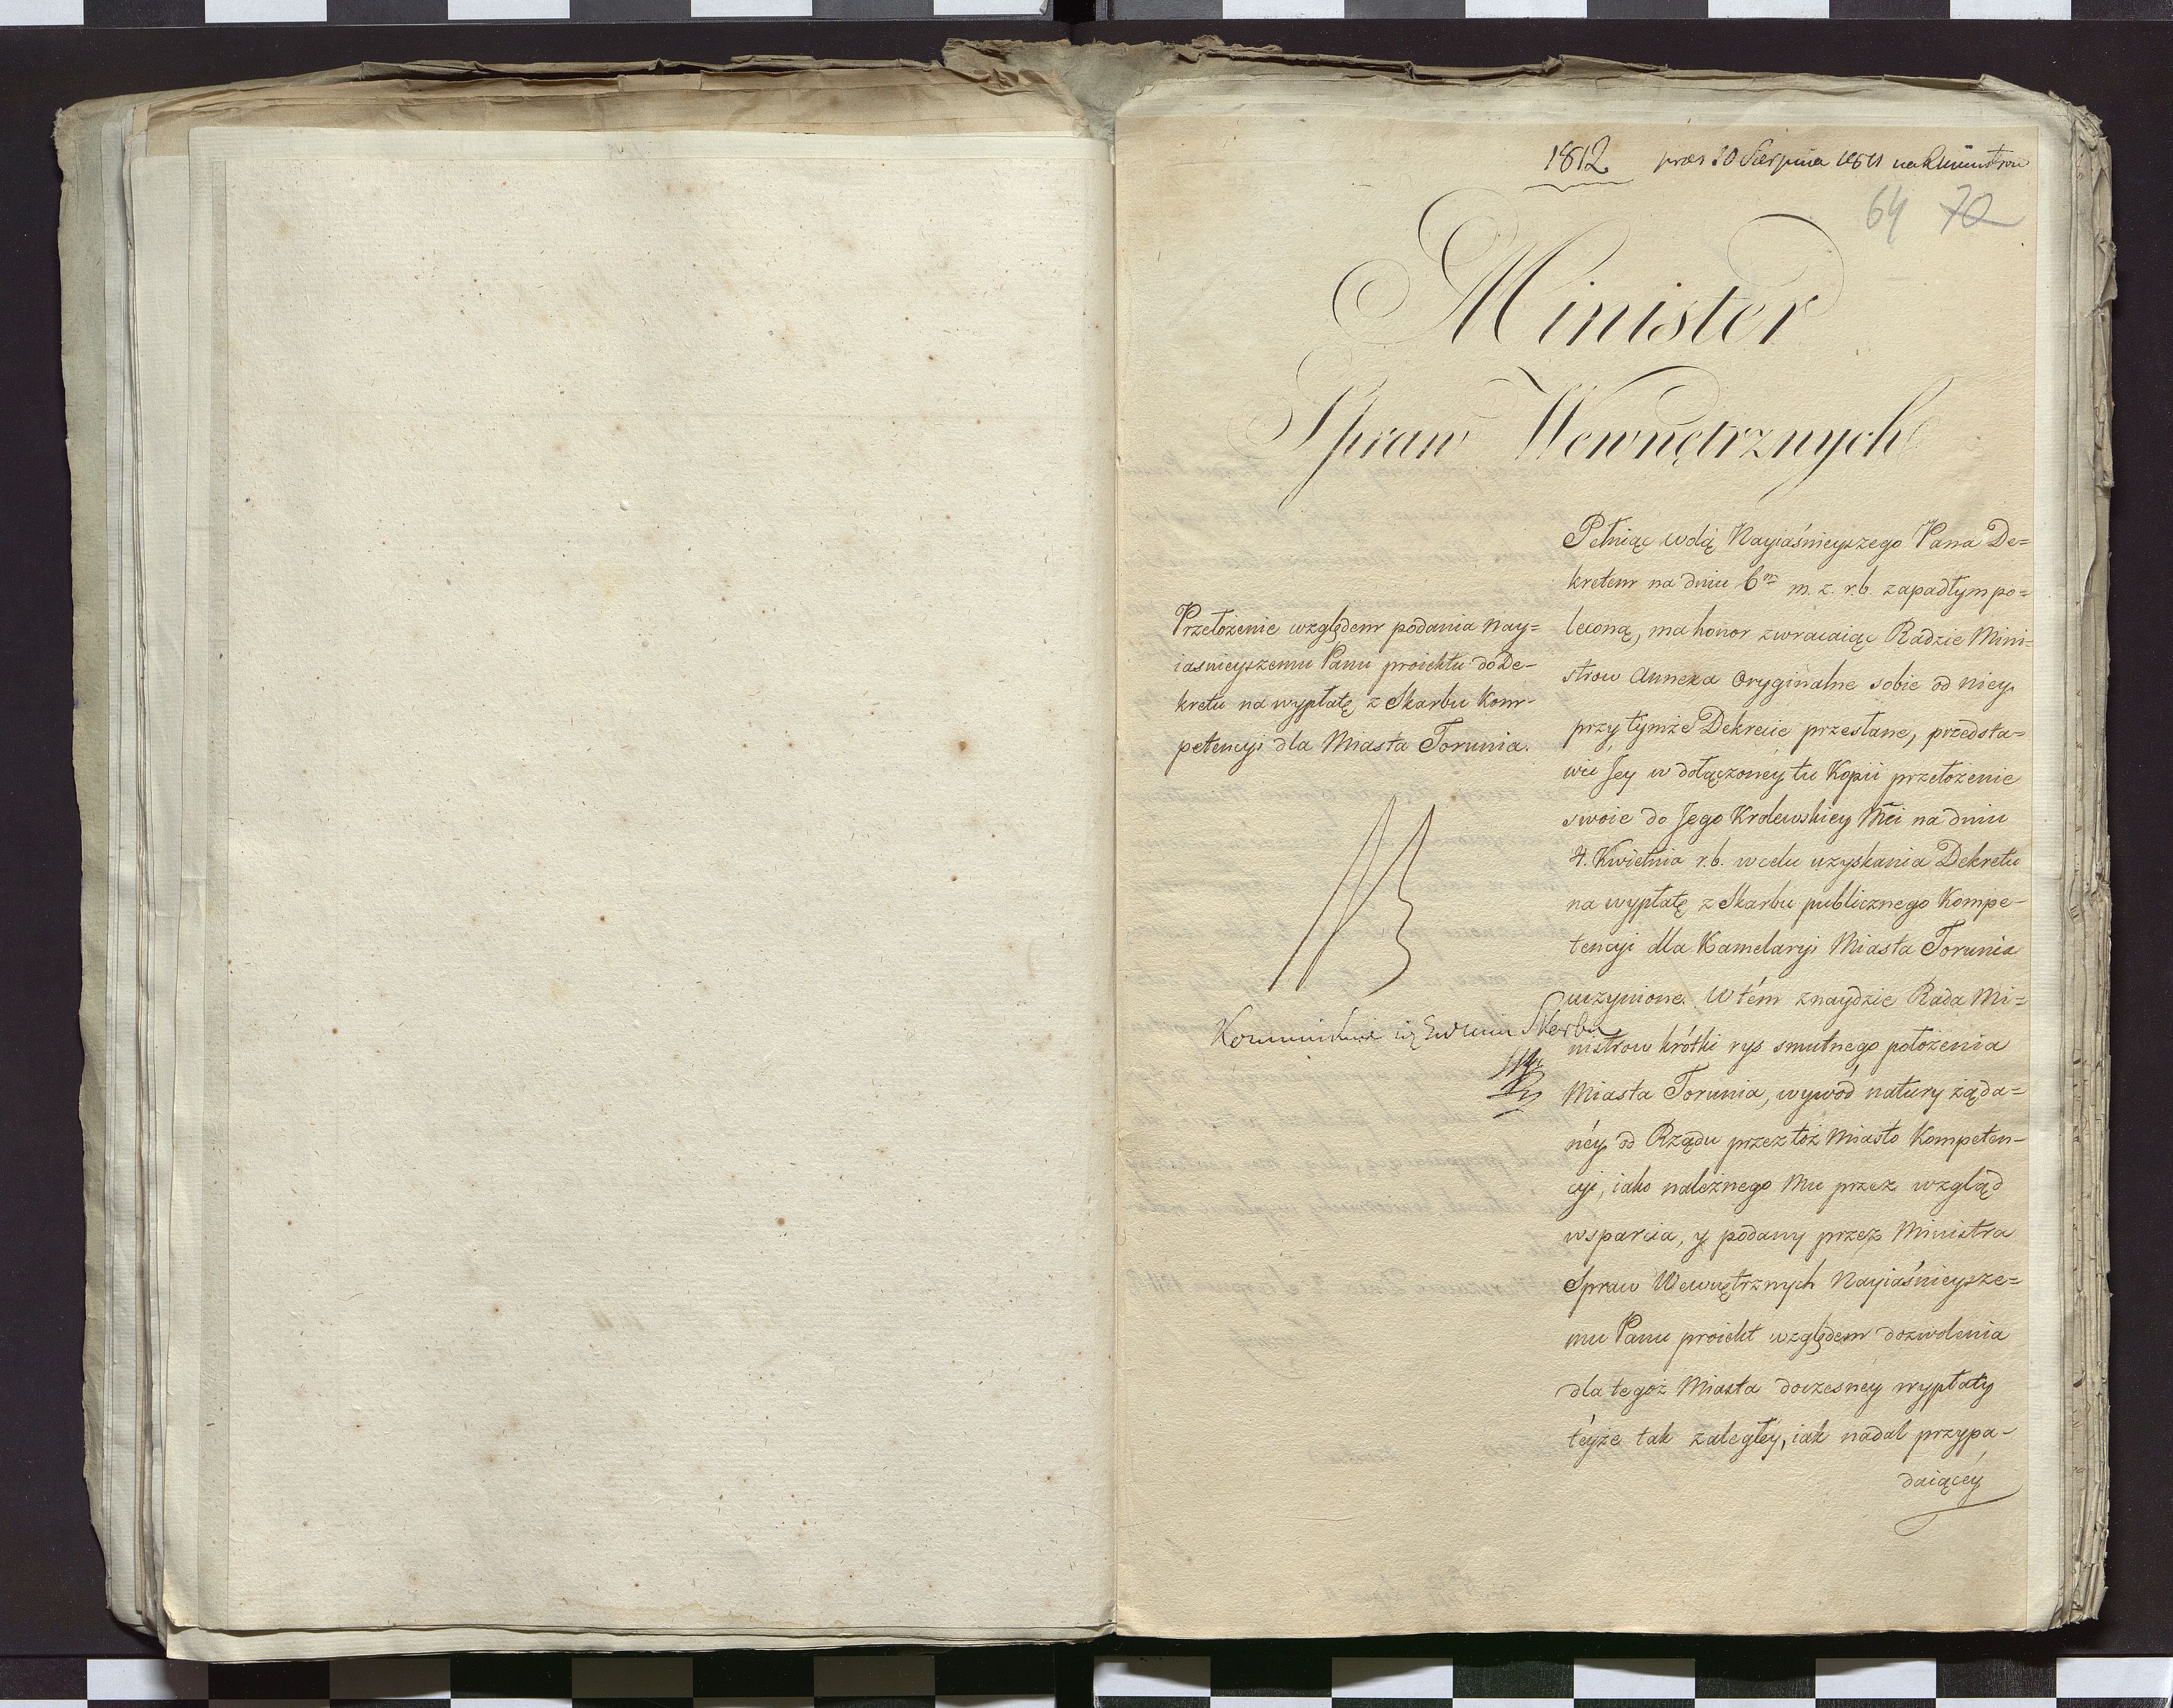 1812 pres 20 Sierpnia 1811 na R Ministrow
64 70
Minister
Spraw Wewnętrznych
Przełożenie względem podania nay=
iaśnieyszemu Panu proiektu do De-
kretu na wypłatę z Skarbu Kom-
petencyi dla Miasta Torunia.
Skarbu
Pełniąc wolą Nayiaśnieyszego Pana De=
kretem na dniu 6m m. z. r.b. zapadłym po=
leconą, ma honor zwracaiąc Radzie Mini=
strow Annexa Oryginalne sobie od niey
przy tymże Dekrecie przesłane, przedsta=
wić Jey w dołączoney tu Kopii przełożenie
swoie do Jego Krolewskiey Mci na dniu
4. Kwietnia r.b. w celu uzyskania Dekretu
na wypłatę z Skarbu publicznego Kompe-
tencyi dla Kamelaryi Miasta Torunia
uczynione. W tém znaydzie Rada Mi=
nistrow krótki rys smutnego położenia
Miasta Torunia, wywód natury żąda=
néy od Rządu przez toż Miasto Kompeten-
cyi, iako należnego Mu przez wzgląd
wsparcia, y podany przez Ministra
Spraw Wewnętrznych Nayiaśnieysze=
mu Panu proiekt względem dozwolenia
dla tegoż Miasta doczesney wypłaty
téyże tak zaległéy, iak nadal przypa-
daiącéy